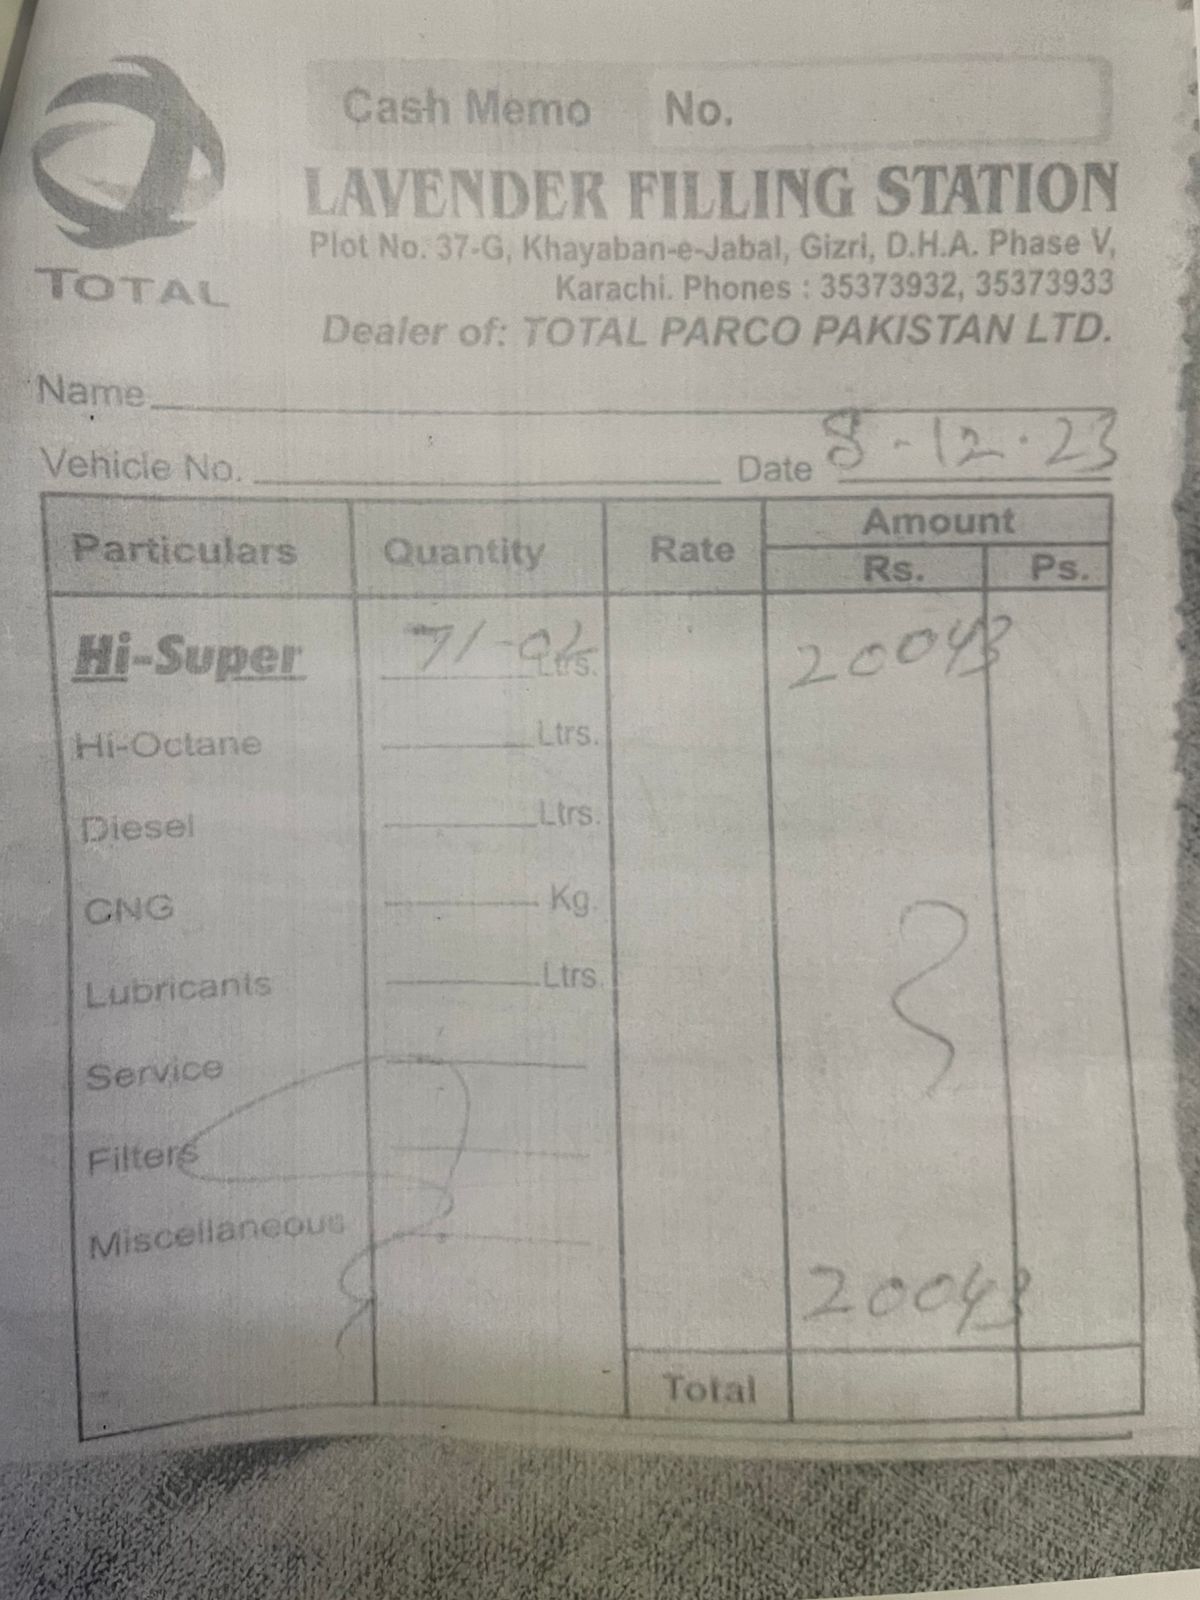 Cash Memo No.
TOTAL
LAVENDER FILLING STATION
Plot No. 37-G, Khayaban-e-Jabal, Gizri, D.H.A. Phase V,
Karachi. Phones : 35373932, 35373933
Dealer of: TOTAL PARCO PAKISTAN LTD.
Name
Vehicle No. Date 8-12.23
Particulars Quantity Rate Amount
Rs. Ps.
Hi-Super Ltrs. 20043
Hi-Octane Ltrs.
Diesel Ltrs.
CNG Kg.
Lubricants Ltrs.
Service
Filters
Miscellaneous
20043
Total